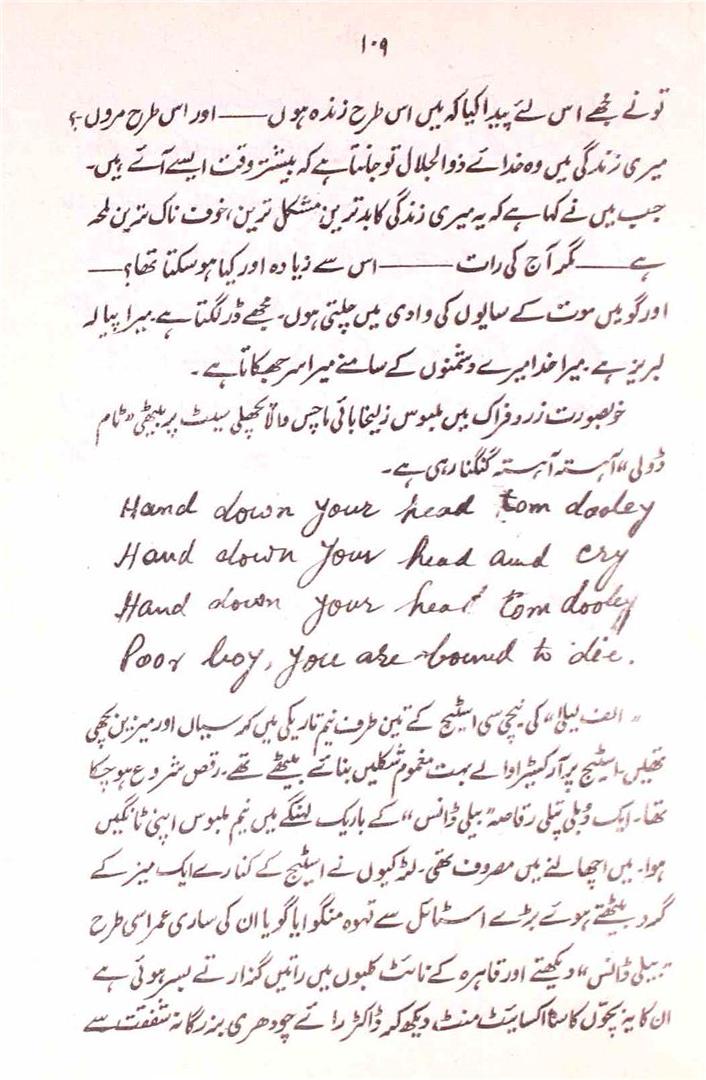 ۱۰۹
تو نے مجھے اس لئے پیدا کیا کہ میں اس طرح زندہ ہوں —— اور اس طرح مروں۔؟
میری زندگی میں وہ خدائے ذوالجلال تو جانتا ہے کہ بیشتر وقت ایسے آئے ہیں۔
جب میں نے کہا ہے کہ یہ میری زندگی کا بدترین مشکل ترین، خوف ناک ترین لمحہ
ہے —— مگر آج کی رات —— اس سے زیادہ اور کیا ہو سکتا تھا؟ ——
اور گو میں موت کے سایوں کی وادی میں چلتی ہوں۔ مجھے ڈر لگتا ہے۔ میرا پیالہ
لبریز ہے۔ میرا خدا میرے دشمنوں کے سامنے میرا سر جھکاتا ہے۔
خوبصورت زرد فراک میں ملبوس زلیخا بائی ماچس والا پچھلی سیٹ پر بیٹھی "ٹام
ڈولی" آہستہ آہستہ گنگنا رہی ہے۔
Hand down your head tom dooley
Hand down your head and cry
Hand down your head tom dooley
Poor boy, you are bound to die.
"الف لیلیٰ" کی نیچی سی اسٹیج کے تین طرف نیم تاریکی میں کرسیاں اور میزیں بچھی
تھیں۔ اسٹیج پر آرکسٹرا والے بہت مغموم شکلیں بنائے بیٹھے تھے۔ رقص شروع ہو چکا
تھا۔ ایک دُبلی پتلی رقاصہ "بیلی ڈانس" کے باریک لہنگے میں نیم ملبوس اپنی ٹانگیں
ہوا میں اچھالنے میں مصروف تھی۔ لڑکیوں نے اسٹیج کے کنارے ایک میز کے
گرد بیٹھتے ہوئے بڑے اسٹائل سے قہوہ منگوایا گویا ان کی ساری عمر اسی طرح
"بیلی ڈانس" دیکھتے اور قاہرہ کے نائٹ کلبوں میں راتیں گذارتے بسر ہوئی ہے
ان کا یہ بچوں کا سا اکسائیٹ منٹ دیکھ کر ڈاکٹر رائے چودھری بزرگانہ شفقت سے